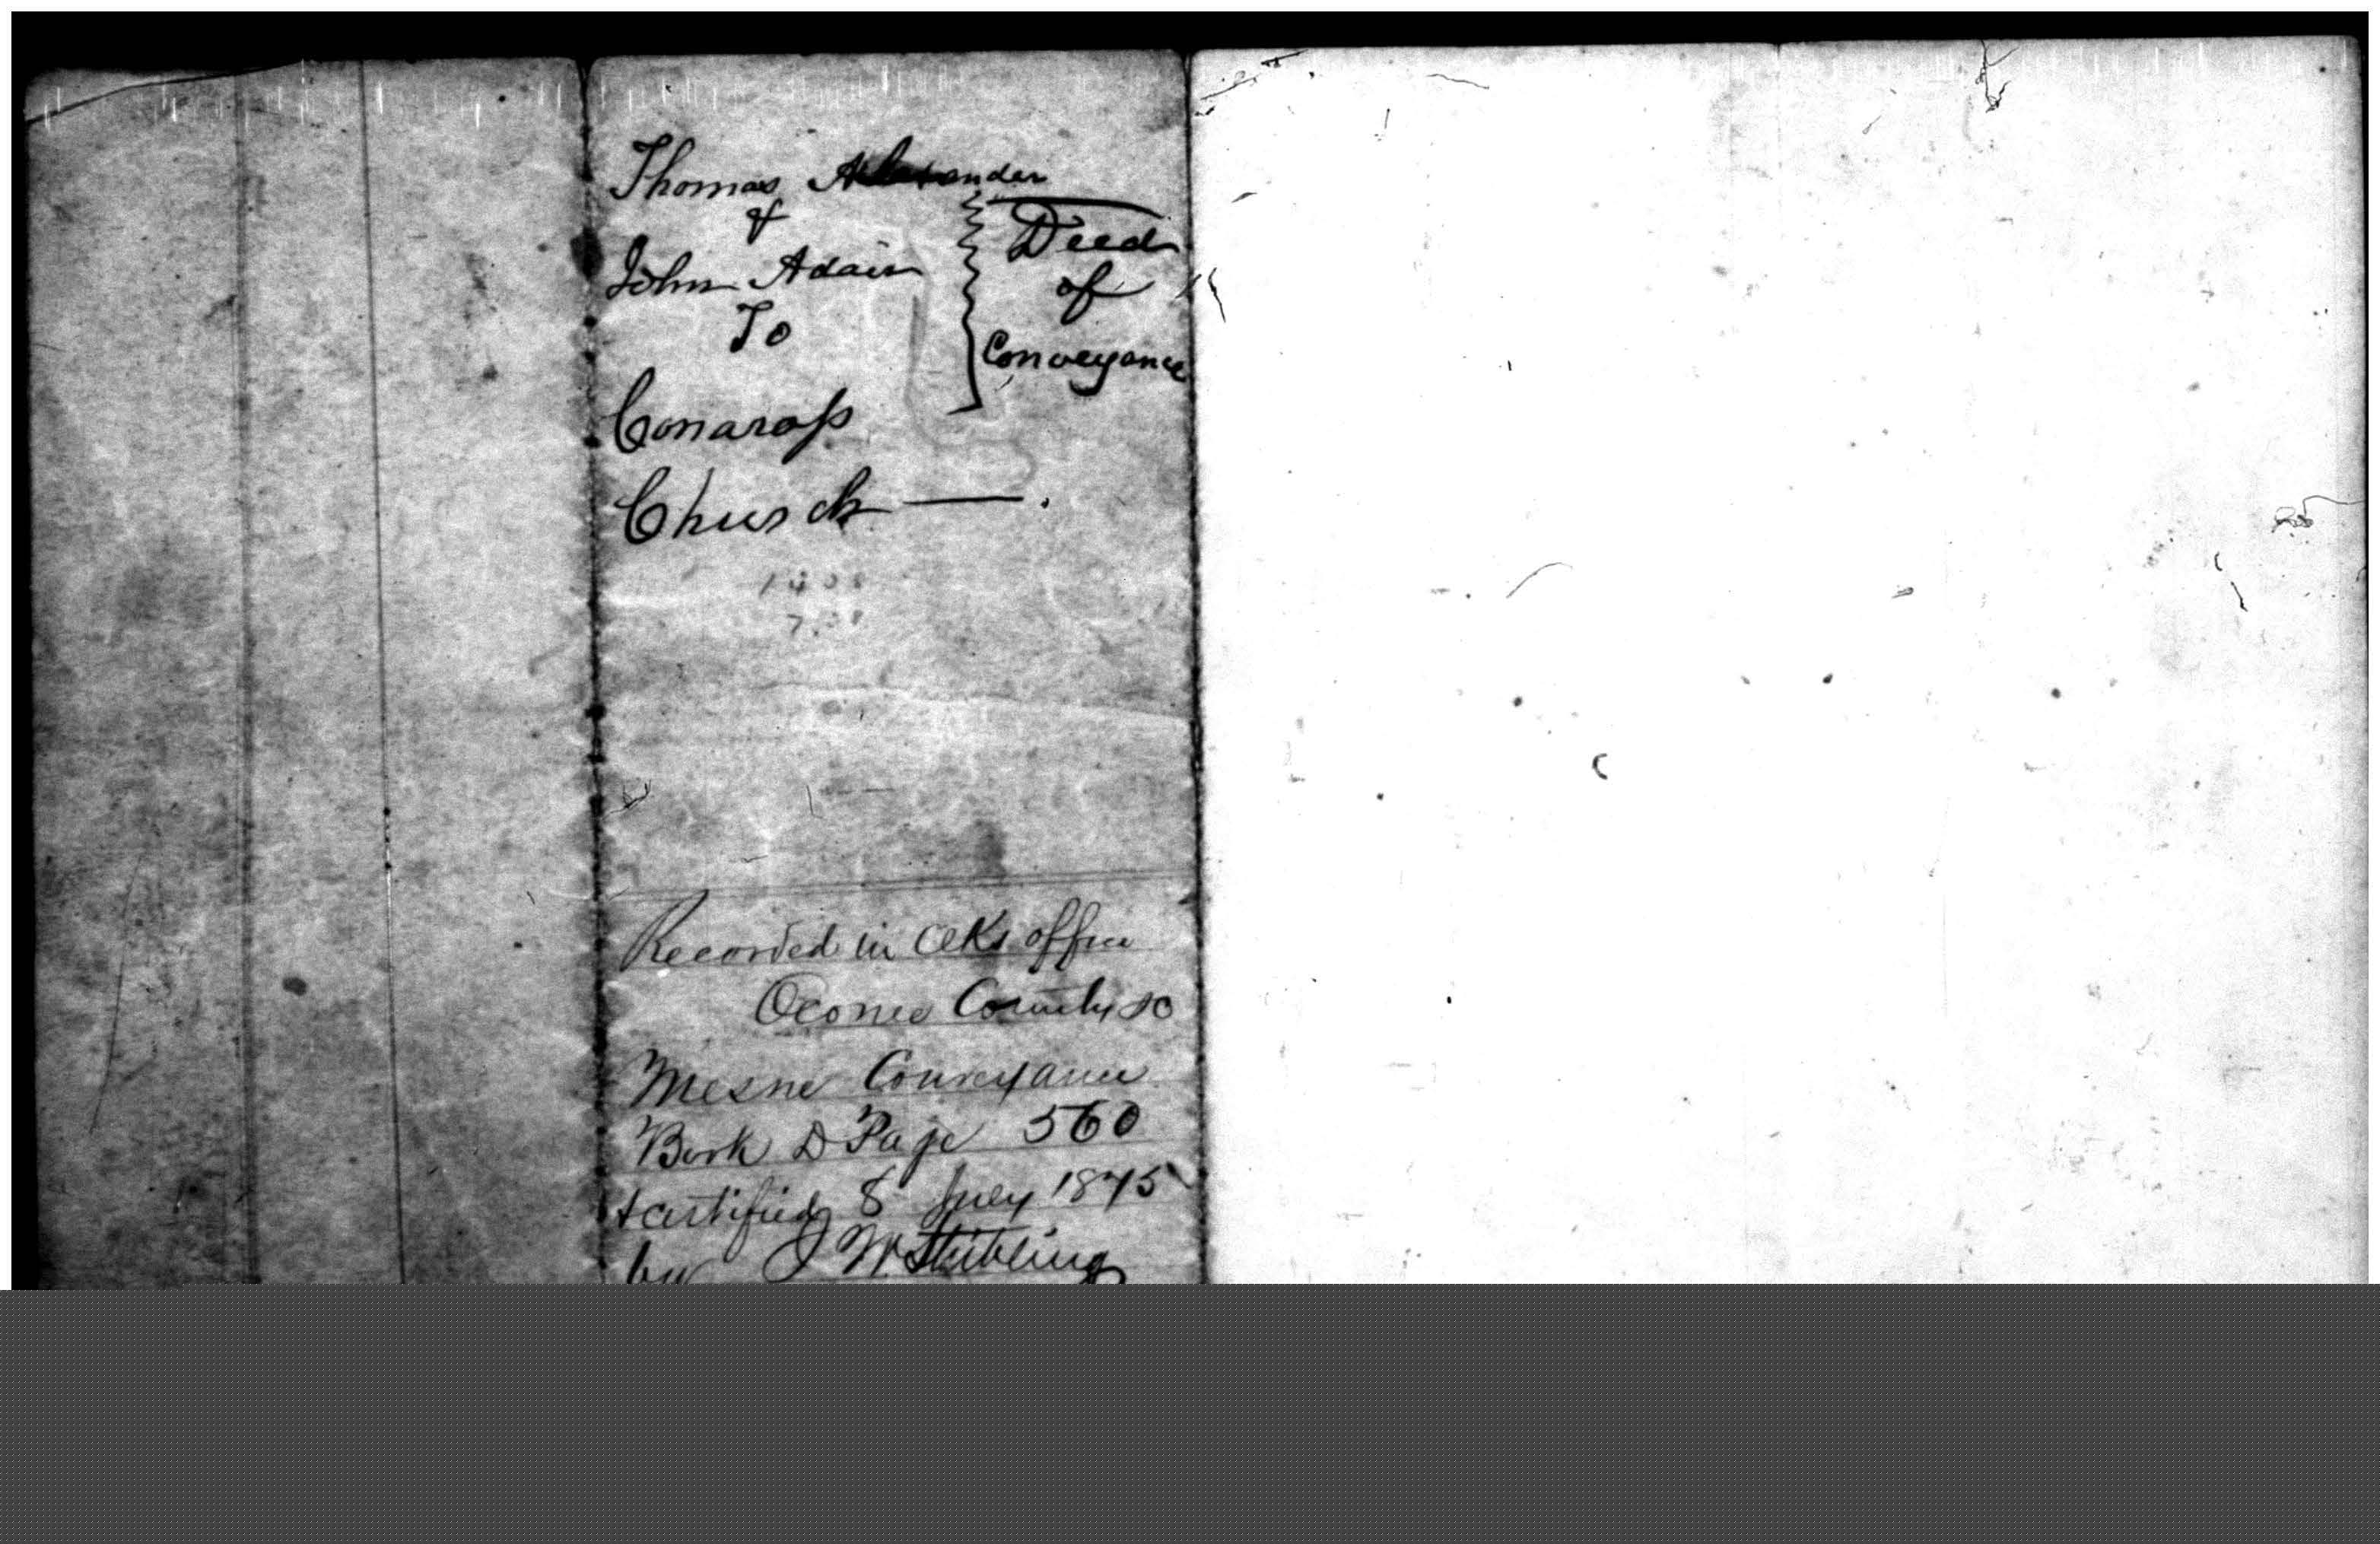 Thomas Alexander
&
John Adair
To
Conaross
Church —.
Deed
of
Conveyance
Recorded in Clks office
Oconee County SC
Mesne Conveyance
Book D Page 560
& certified 8 July 1875
by J W Stribling